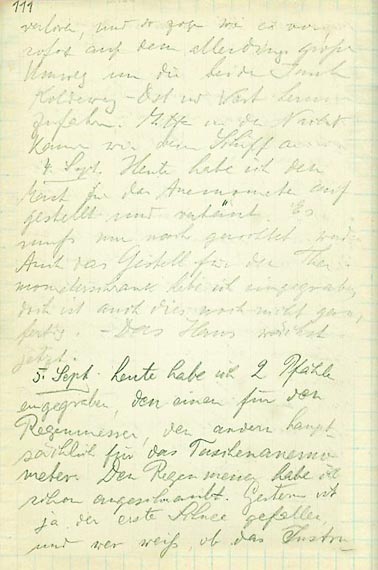 111
verloren, und so zogen wir es vor,
sofort auf dem allerdings großen
Umweg um die beiden Inseln
Koldewey-Ost und West herum
zufahren. Mitten in der Nacht
kamen wir dem Schiff an
4. Sept. Heute habe ich den
Mast für das Anemometer auf
gestellt und verhäut. Es
muß nun noch werden
Auch das Gestell für den Ther
mometerschrank habe ich eingegraben,
doch ist auch dies noch nicht ganz
fertig. - Das Haus wächst
jetzt.
5. Sept. heute habe ich 2 Pfähle
eingegraben, den einen für den
Regenmesser, den andern haupt-
sächlich für das Taschenanemo-
meter. Den Regenmesser habe ich
schon angeschraubt. Gestern ist
ja der erste Schnee gefallen,
und wer weiß, ob das Instru-